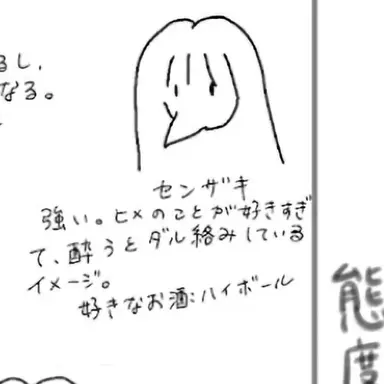 るし、
なる。
センザキ
強い。ヒメのことが好きすぎ
て、酔うとダル絡みしている
イメージ。
好きなお酒:ハイボール
態度